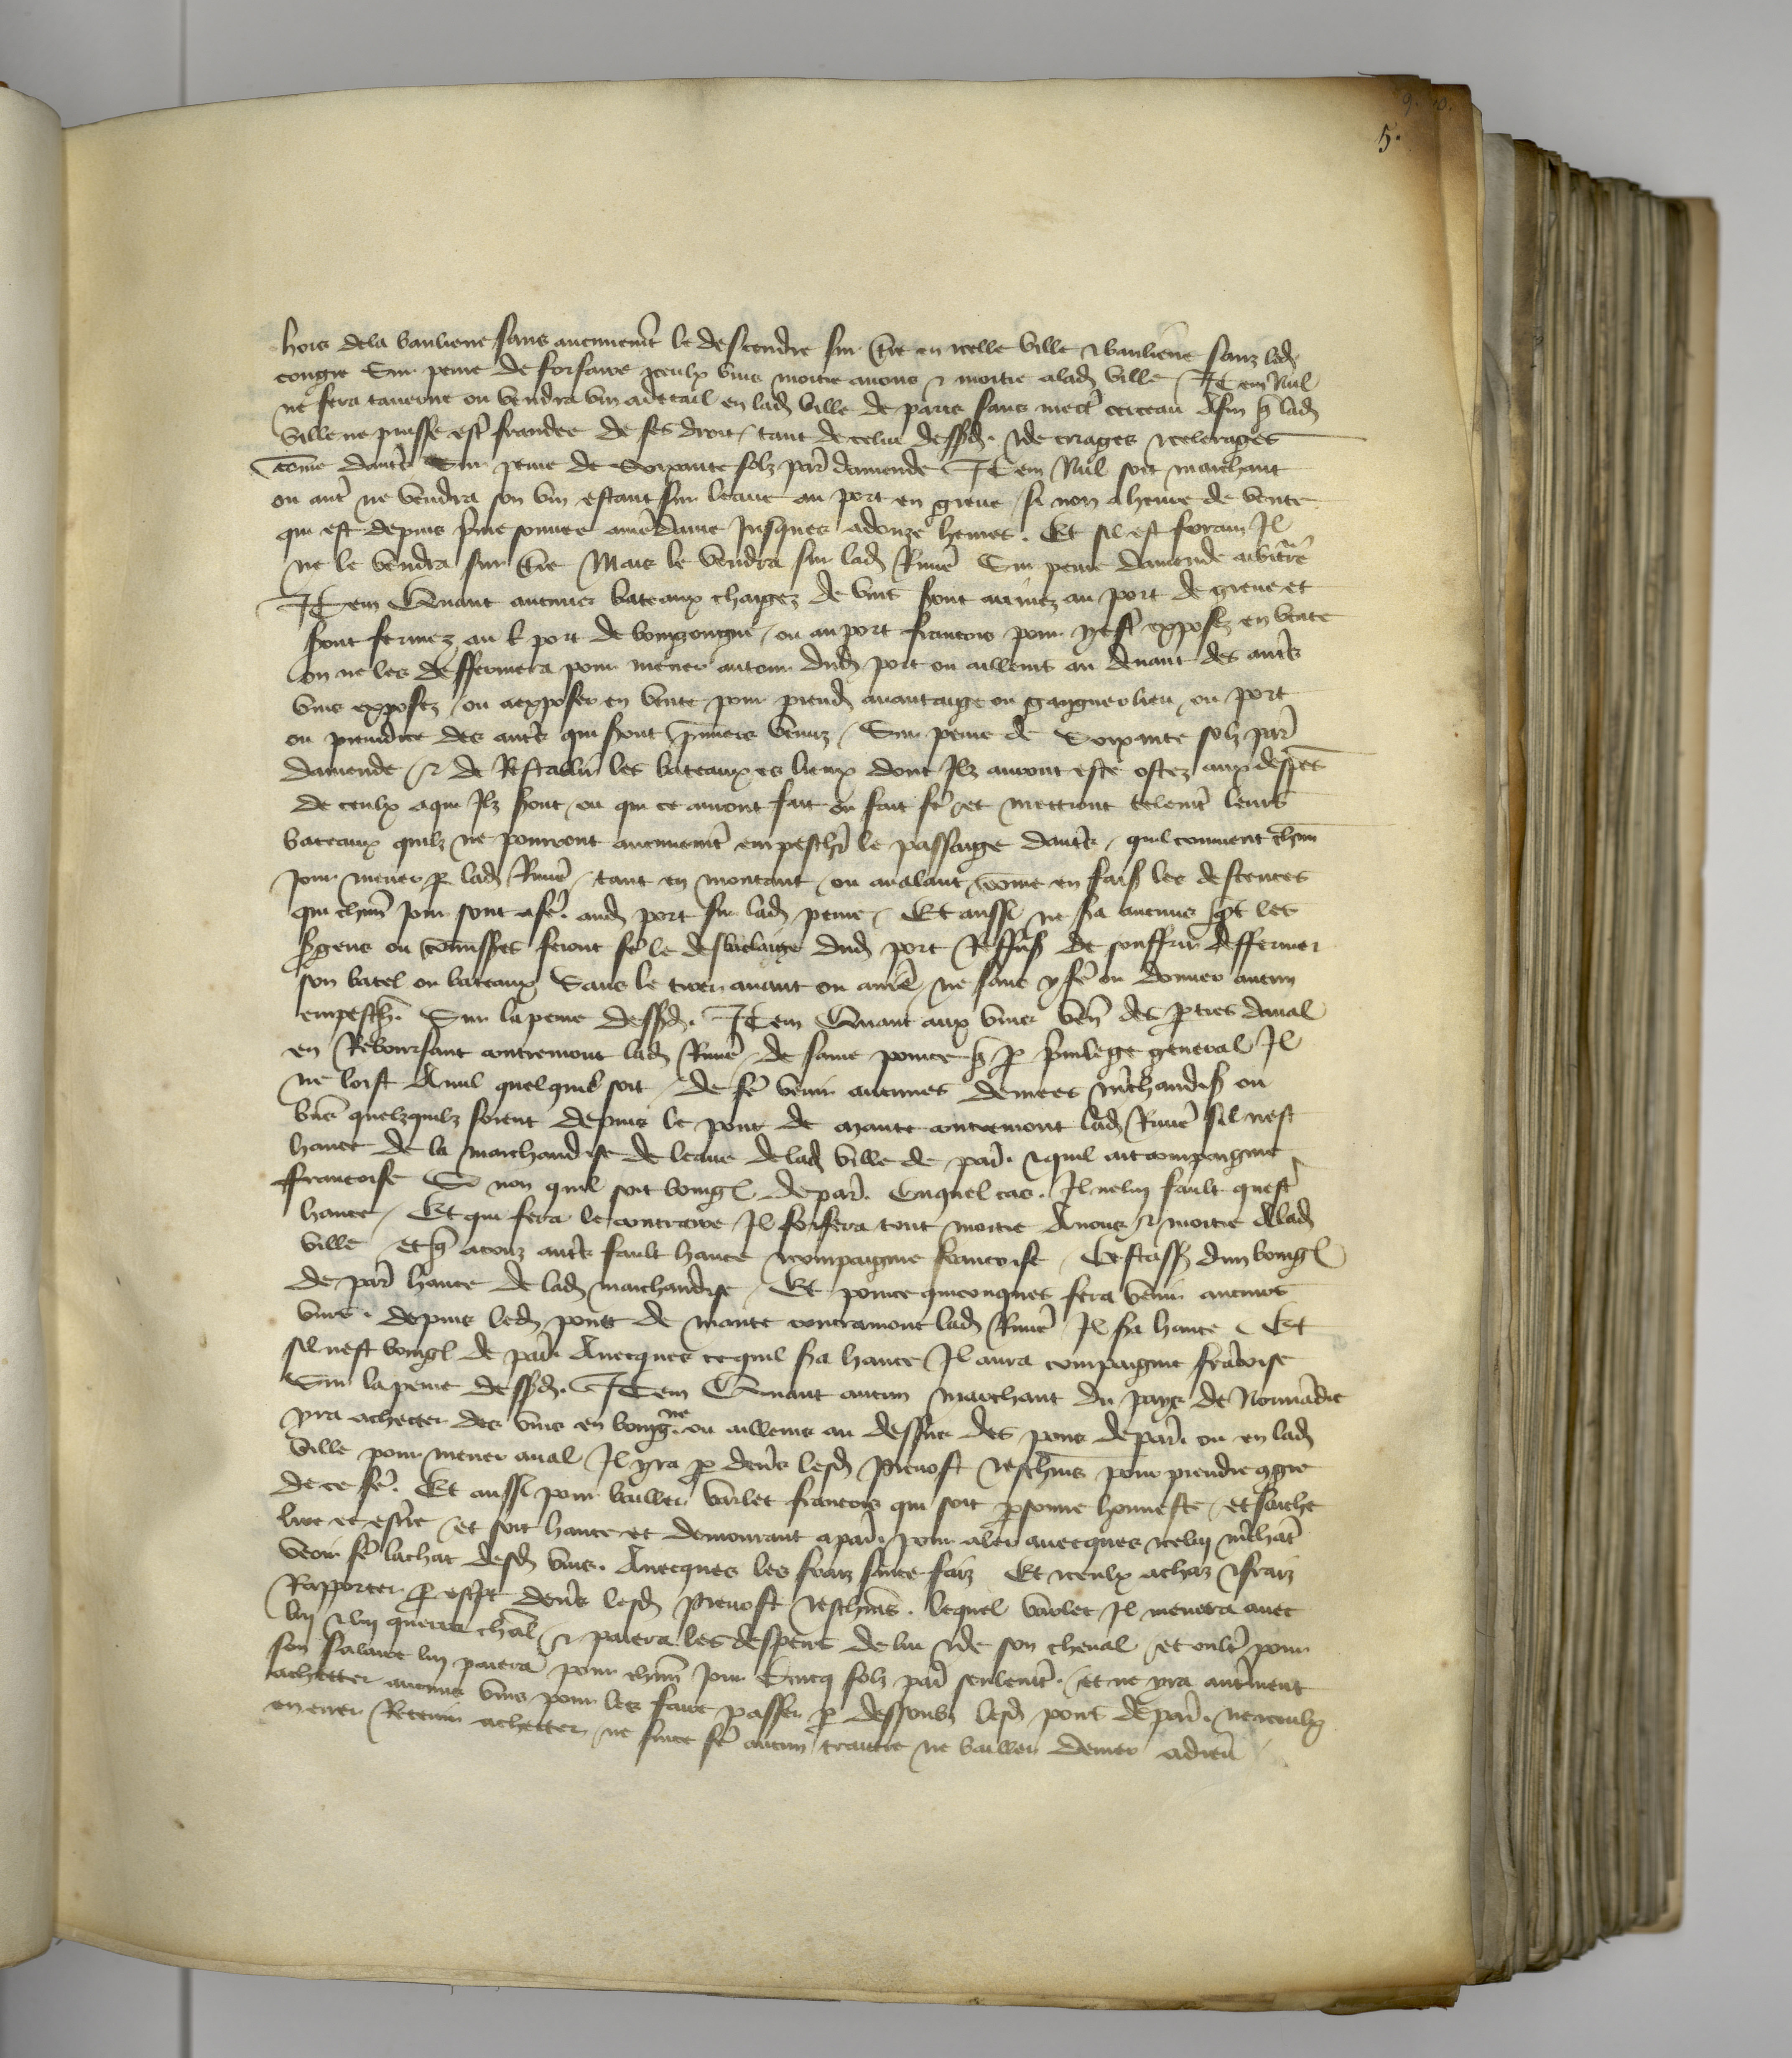 9. 10.
5.
hors dela banlieue sans aucunemt le descendre sur tre en icelle ville & banlieue sanz led
congie Sur peine de forfaire iceulx vins moitie a nous & moitie a lad ville Item Nul
ne fera taverne ou vendra vin a detail en lad ville de paris sans mectr cerceau Afin q lad
ville ne puisse estr fraudee de ses droiz tant de celui dessusd. & de criages & celerages
come dautrs Sur peine de Soixante solz par damende Item Nul soit marchant
ou autr ne vendra son vin estant sur leaue au port en greve si non a heure de vente
qui est depuis prime sonnee a nre dame Jusques a douze heures. Et sil est forain Jl
ne le vendra sur tre Mais le vendra sur lad Riviere Sur peine damende arbitrre
Item Quant aucuns bateaux chargez de vins sont arrivez au port de greve et
sont fermez au port de bourgongne ou au port francois pour y estr exposez en vente
on ne les deffermera pour mener autour dud port ou ailleurs au devant des autrs
vins exposez ou a exposer en vente pour prendre avantaige ou gaigner lieu ou port
ou preiudice des autrs qui sont premiers venuz Sur peine de Soixante solz par
damende & de Restablir les bateaux es lieux dont Jlz auront este ostez aux despes
de ceulx a qui Jlz sont ou qui ce auront fait ou fait fe et mettront telemt leurs
bateaux quilz ne pourront aucunemt empeschr le passaige dautrs quil convient chun
jour mener p lad Riviere tant en montant ou avalant come en fais les descentes
qui chun jour sont a fe. aud port sur lad peine Et aussi ne sa aucuns qt les
sgens ou comisses feront fe le desbaclaige dud port Reffus de souffrir deffermer
son batel ou bateaux Sans le tirer avant ou arre ne sans y fe ou donner aucun
empesch. Sur la peine dessusd. Item Quant aux vins ven des pties daval
en Reboursant contremont lad Riviere de saine pource q p privilege general Jl
ne loist A nul quelquil soit de fe venir aucunes denrees mchandis ou
vins quelzquilz soient depuis le pont de mante contremont lad Riviere sil nest
hance de la marchandise de leaue de lad ville de par. & quil ait compaignie
francoise Se non quil soit bourgl de par. Enquel cas. Jl ne luy fault questr
hance Et qui fera le contraire Jl forfera tout moitie A nous & moitie A lad
ville et q a touz autrs fault hance & compaignie francoise Cestass dun bourgl
de par hance de lad marchandise Et pource quiconques fera venir aucuns
vins. depuis led pont de mante contramont lad Riviere Jl sa hance Et
sil nest bourgl de par. Avecques ce quil sa hance Jl aura compaignie fracoise
Sur la peine dessusd. Item Quant aucun marchant du pays de Normadie
yra achecter des vins en bourgne ou ailleurs au dessus des pons de par. ou en lad
ville pour mener aval Jl yra p devrs lesd Prevost & eschevins pour prendre 9gie
de ce fe. Et aussi pour bailler varlet francois qui soit psonne honneste et saiche
lire et escrre et soit hance et demourant a par. pour aler avecques icelui mchat
veoir fe lachat desd vins. Avecques les fraiz sur ce faiz Et iceulx achaz & fraiz
Rapporter p escript devrs lesd Prevost & eschevins. lequel varlet Jl menera avec
luy & luy querra chal & paiera les despens de lui & de son cheval et oultr pour
son salaire luy paiera pour chun jour Cincq solz par seulemt. et ne yra autrment
achetter aucuns vins pour les faire passer p dessoubz lesd pons de par. ne iceulx
enerrer Retenir achetter ne sur ce fe aucun traictie ne bailler denier adieu